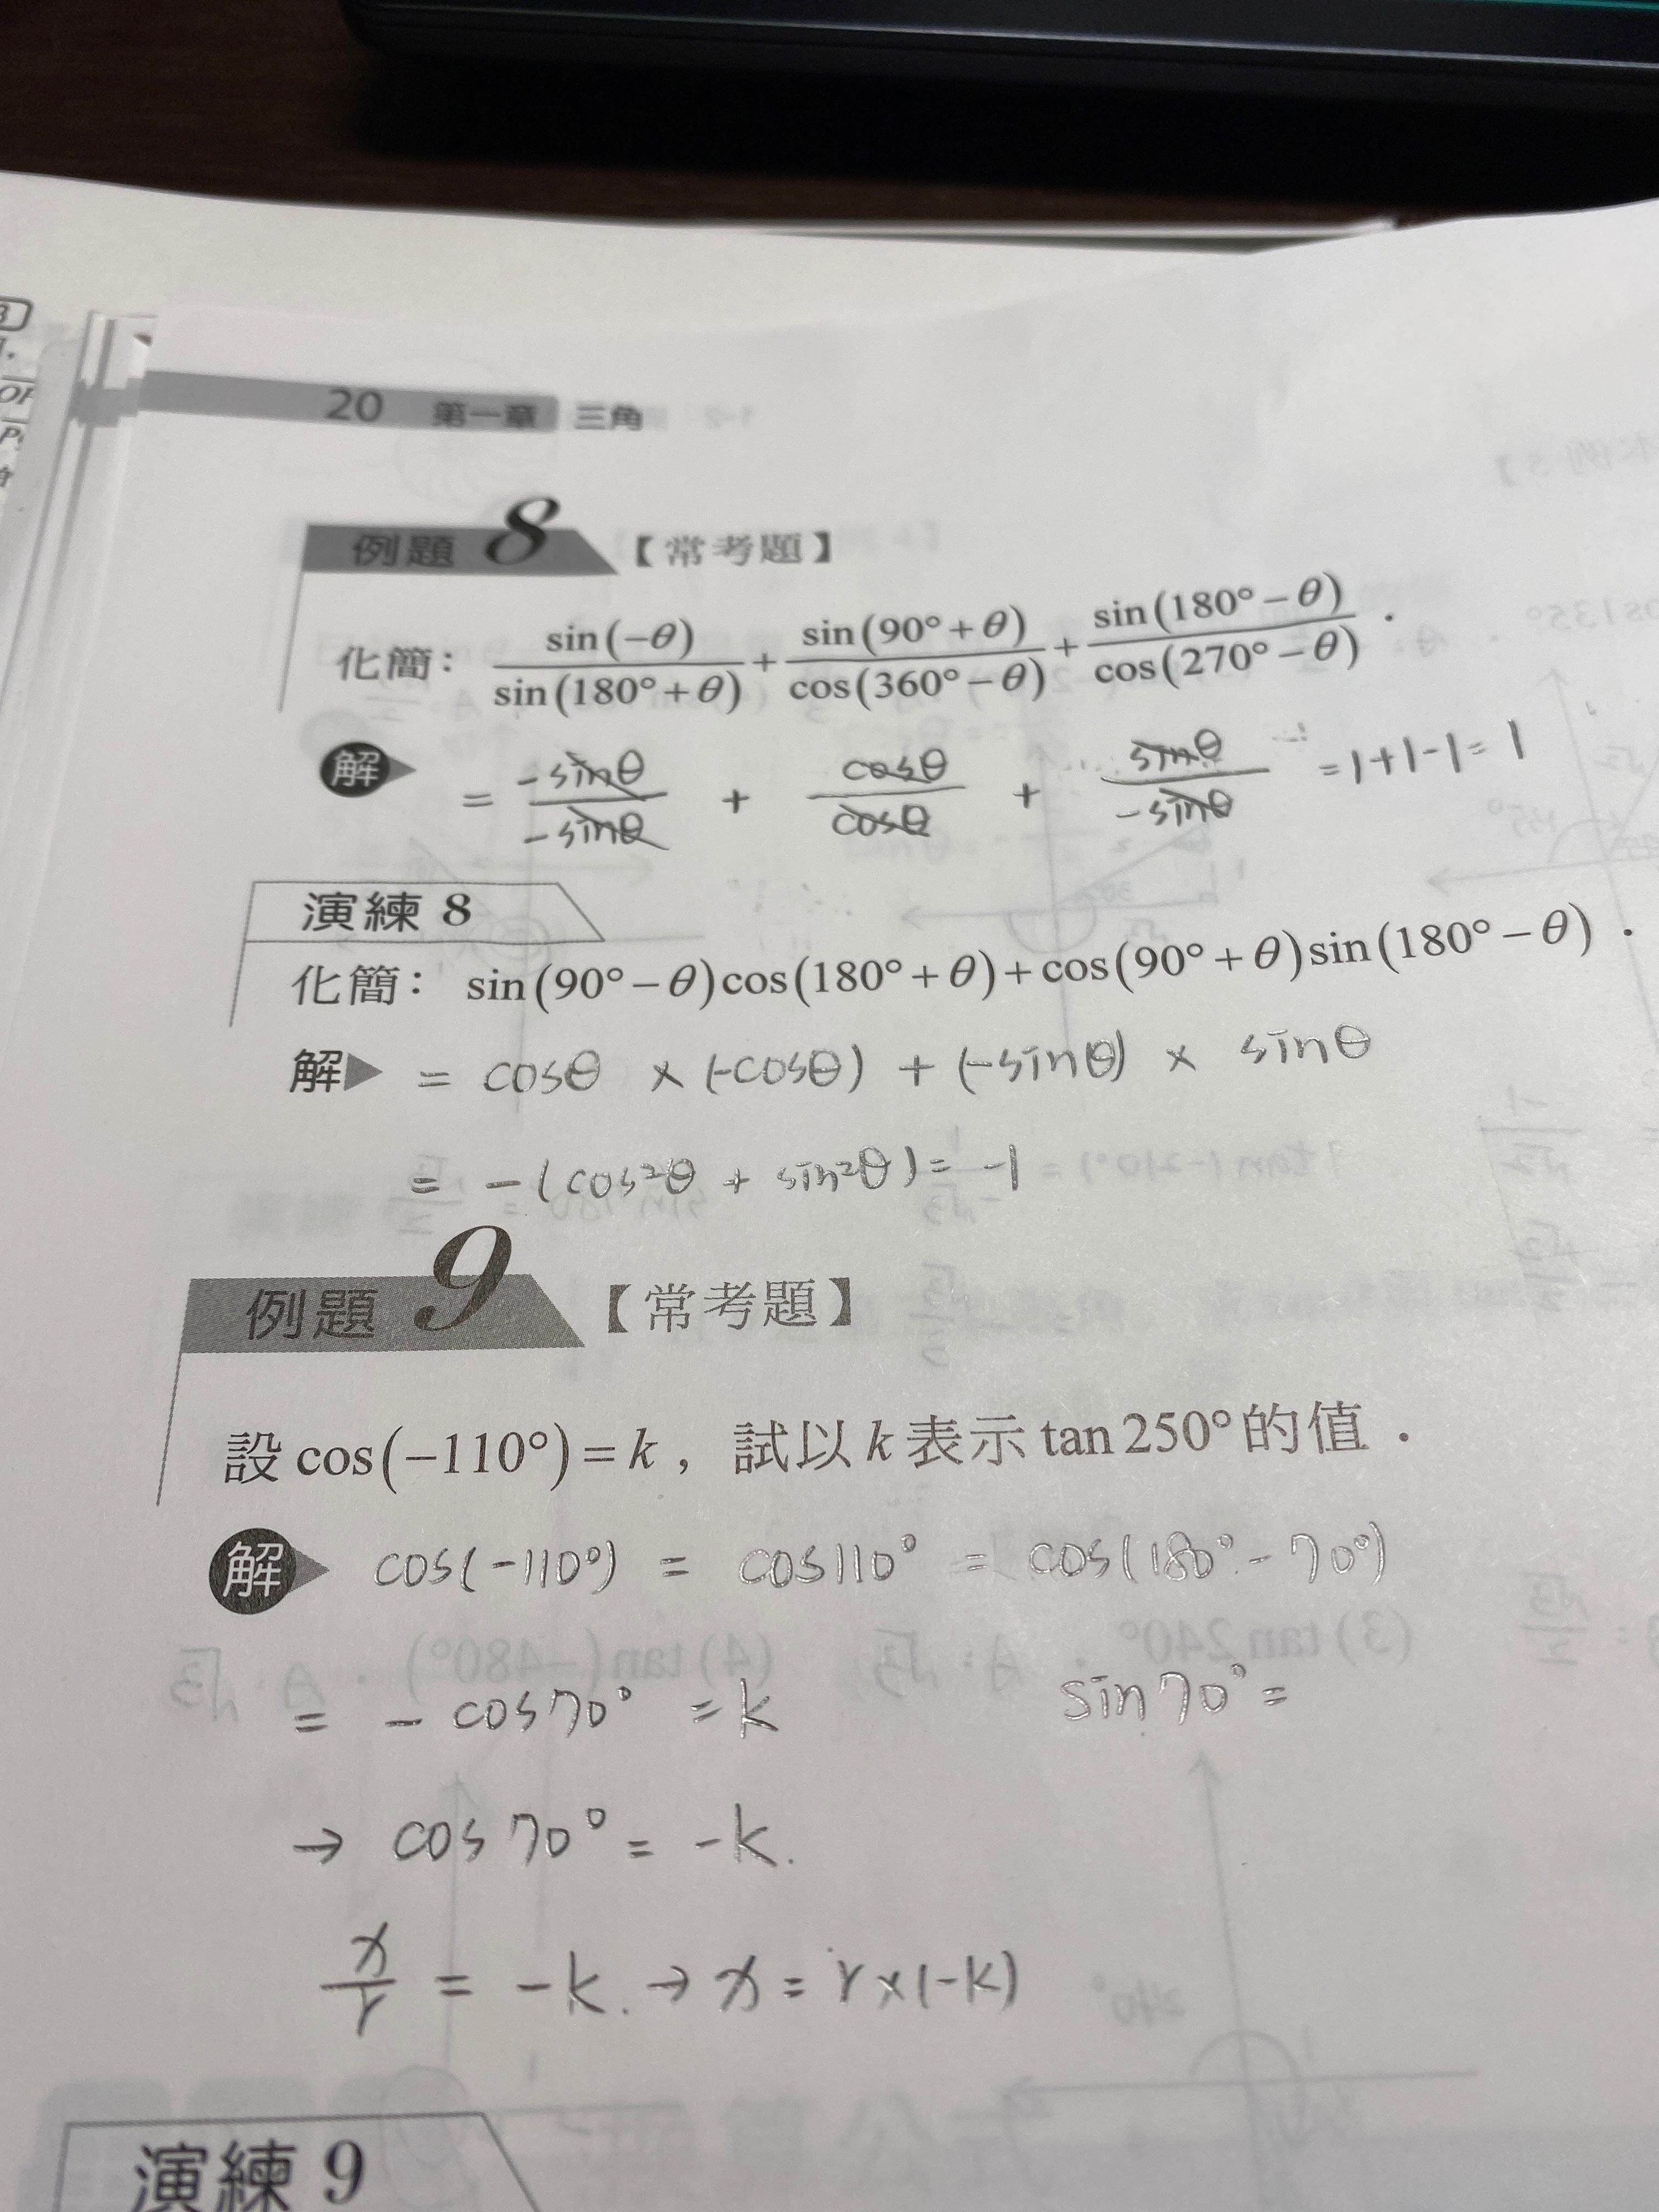 20 第一章 三角
例題 8 【常考題】
化簡： sin(−θ)/sin(180°+θ) + sin(90°+θ)/cos(360°−θ) + sin(180°−θ)/cos(270°−θ) .
解 = -sinθ/-sinθ + cosθ/cosθ + sinθ/-sinθ = 1+1-1 = 1
演練 8
化簡： sin(90°−θ)cos(180°+θ)+cos(90°+θ)sin(180°−θ) .
解 = cosθ × (-cosθ) + (-sinθ) × sinθ
= -(cos²θ + sin²θ) = -1
例題 9 【常考題】
設 cos(−110°)=k，試以 k 表示 tan 250° 的值．
解 cos(-110°) = cos110° = cos(180°-70°)
= - cos70° = k sin70° =
→ cos70° = -k.
x/r = -k. → x = r×(-k)
演練 9